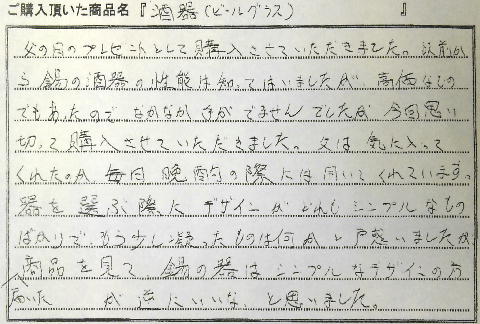 ご購入頂いた商品名『酒器(ビールグラス)』
父の日のプレゼントとして購入させていただきました。以前か
ら錫の酒器の性能は知ってはいましたが 高価なもの
でもあったのでなかなか手がでませんでしたが今回思い
切って購入させていただきました。父は気に入って
くれたのか毎日晩酌の際には用いてくれています。
器を選ぶ際にデザインがどれもシンプルなもの
ばかりで、もう少し凝ったものは何かと戸惑いましたが、
商品を見て 錫の器はシンプルなデザインの方
届いた が逆にいいな、と思いました。